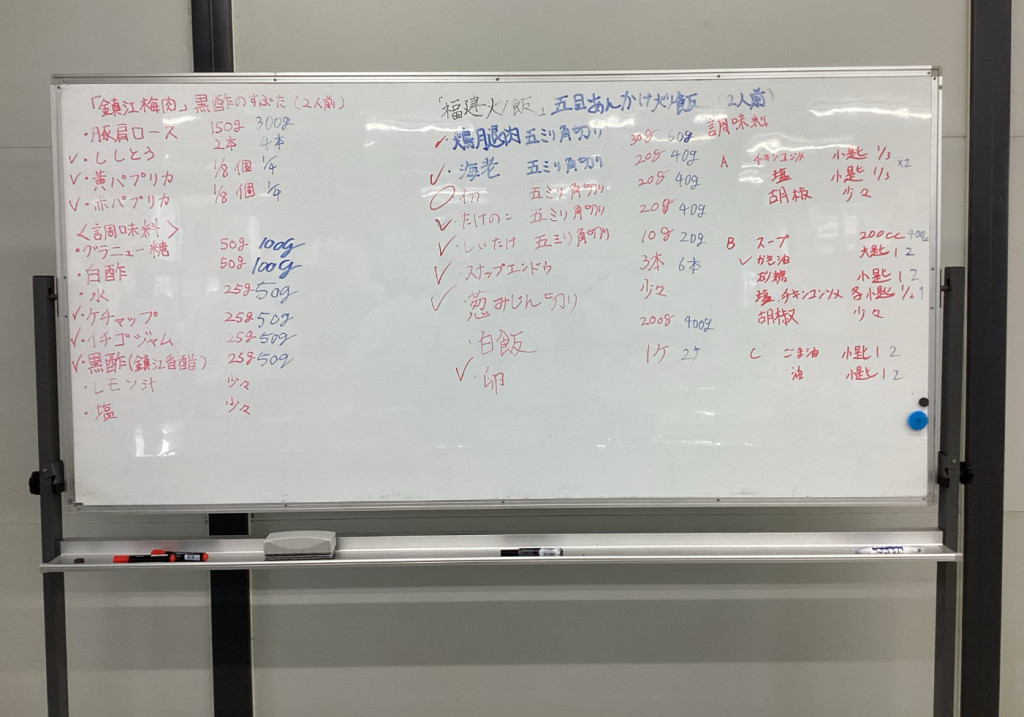 「鎮江梅肉」黒酢のすぶた（2人前）
・豚肩ロース 150g 300g
✓・ししとう 2本 4本
✓・黄パプリカ 1/8個 1/4
✓・赤パプリカ 1/8個 1/4
〈調味料〉
・グラニュー糖 50g 100g
・白酢 50g 100g
・水 25g 50g
✓・ケチャップ 25g 50g
✓・イチゴジャム 25g 50g
✓・黒酢(鎮江香醋) 25g 50g
・レモン汁 少々
・塩 少々
「福建火少飯」五目あんかけ炒飯（2人前）
✓・鶏腿肉 五ミリ角切り 30g 60g
✓・海老 五ミリ角切り 20g 40g
五ミリ角切り 20g 40g
✓・たけのこ 五ミリ角切り 20g 40g
✓・しいたけ 五ミリ角切り 10g 20g
✓・スナップエンドウ 3本 6本
✓・葱みじん切り 少々
・白飯 200g 400g
✓・卵 1ケ 2ケ
調味料
A チキンコンソメ 小匙 1/3
塩 小匙 1/3 ×2
胡椒 少々
B スープ 200cc 400g
✓かき油 大匙 1 2
砂糖 小匙 1 2
塩、チキンコンソメ 各小匙 1/2 1
胡椒 少々
C ごま油 小匙 1 2
油 小匙 1 2